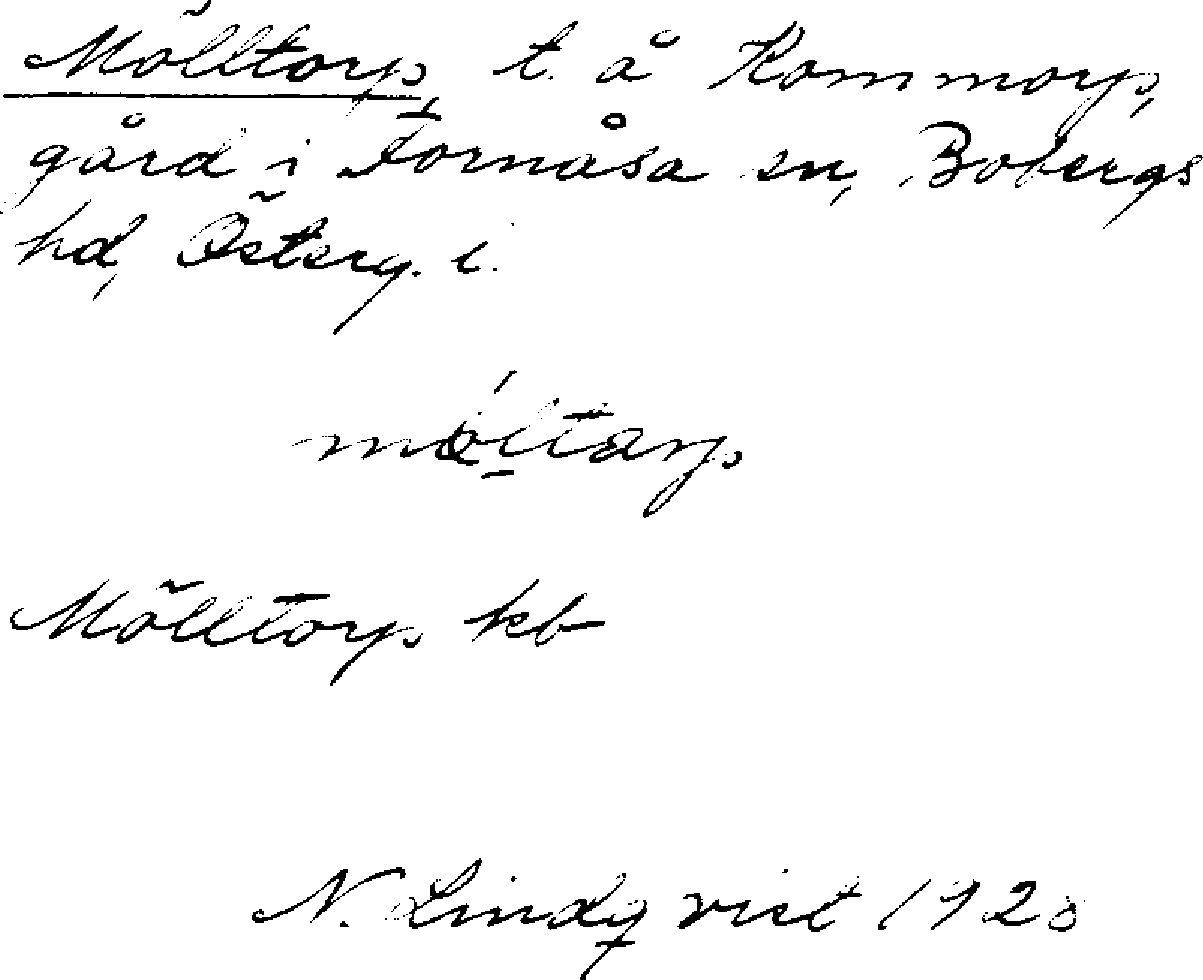 Mölltorp, t. å Kommorp,
gård i Fornåsa sn, Bobergs
hd, Österg. l.
móltarp
Mölltorp kb
N. Lindqvist 1920